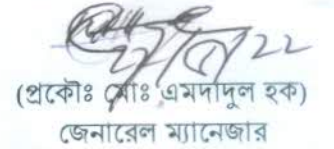 ২২
(প্রকৌঃ মোঃ এমদাদুল হক)
জেনারেল ম্যানেজার